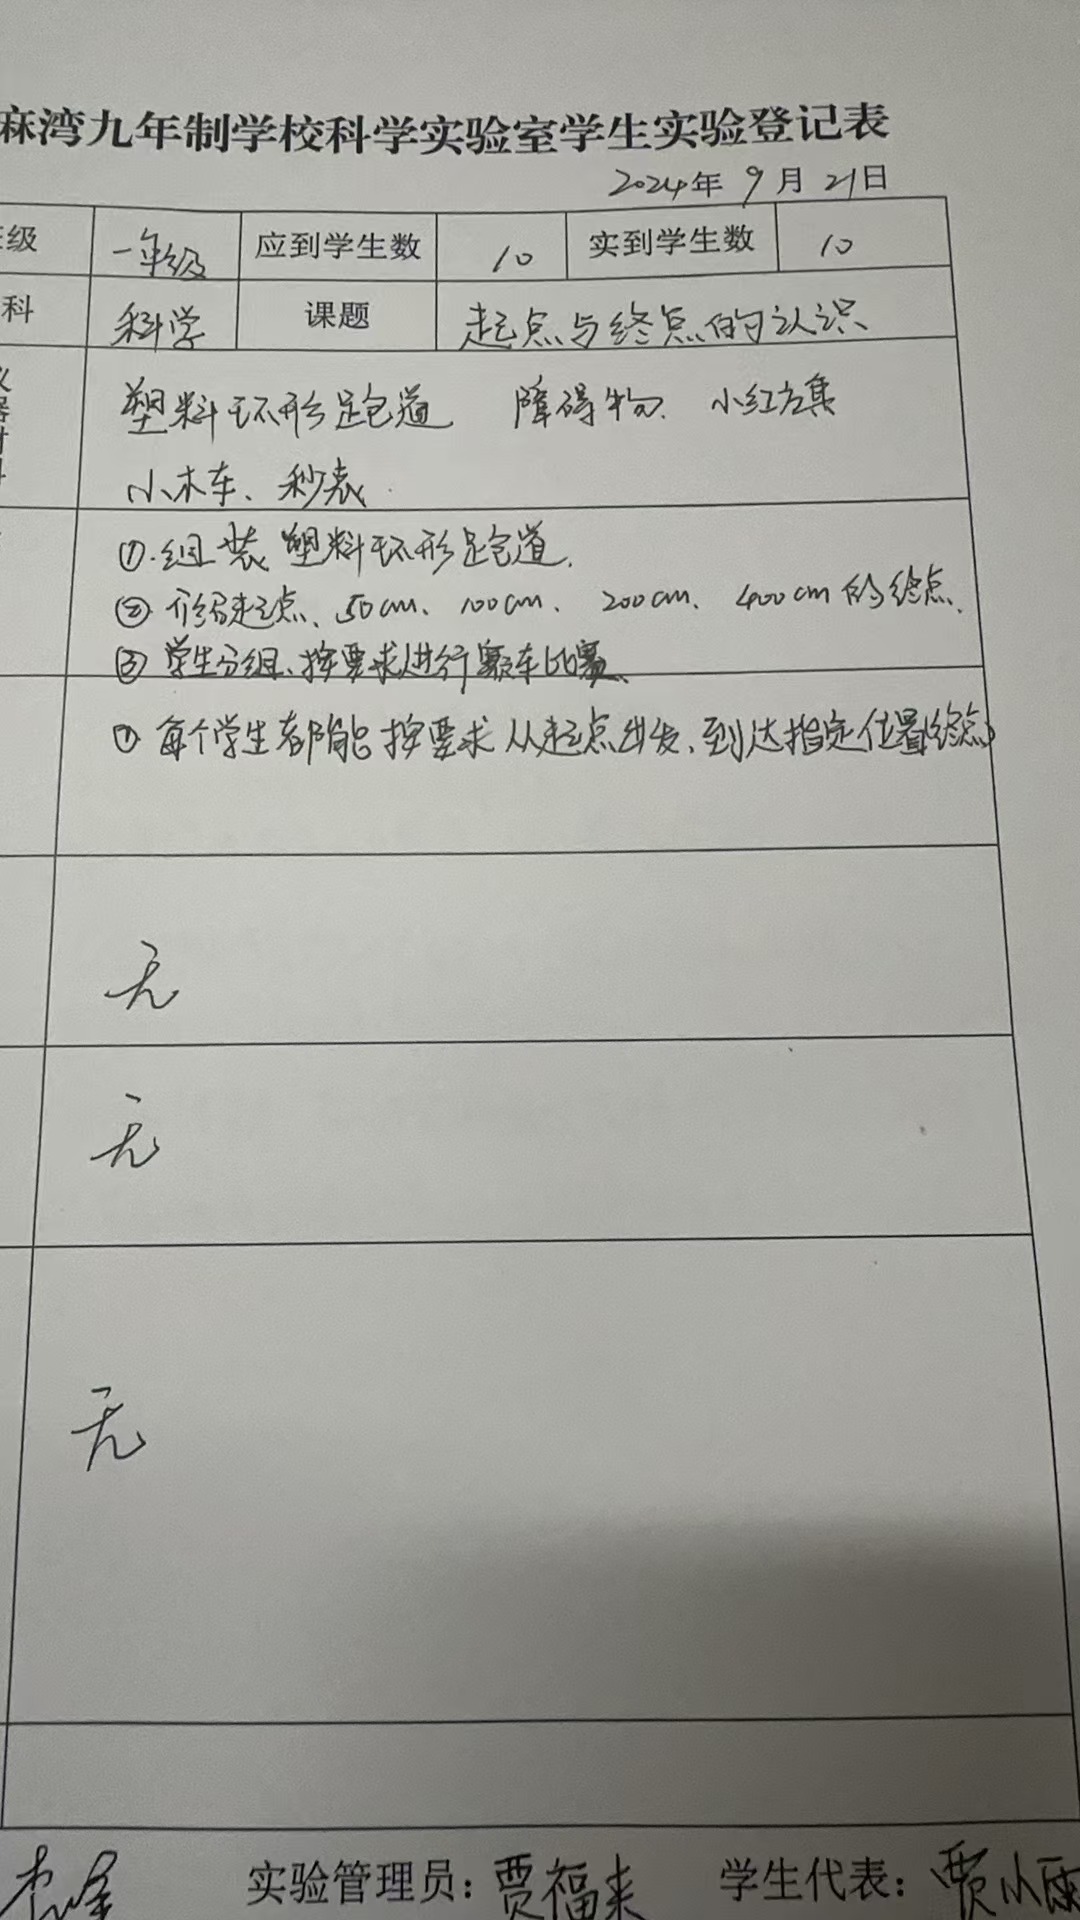 麻湾九年制学校科学实验室学生实验登记表
2024年 9月 21日
级 一年级 应到学生数 10 实到学生数 10
科 科学 课题 起点与终点的认识
塑料环形跑道 障碍物、小红方集
小木车、秒表
①.组装塑料环形跑道.
② 介绍起点、50cm、100cm、200cm、400cm的终点.
③ 学生分组、按要求进行赛车比赛、
① 每个学生都能按要求从起点出发,到达指定位置(终点)
无
无
无
实验管理员:贾福来 学生代表:贾小雨